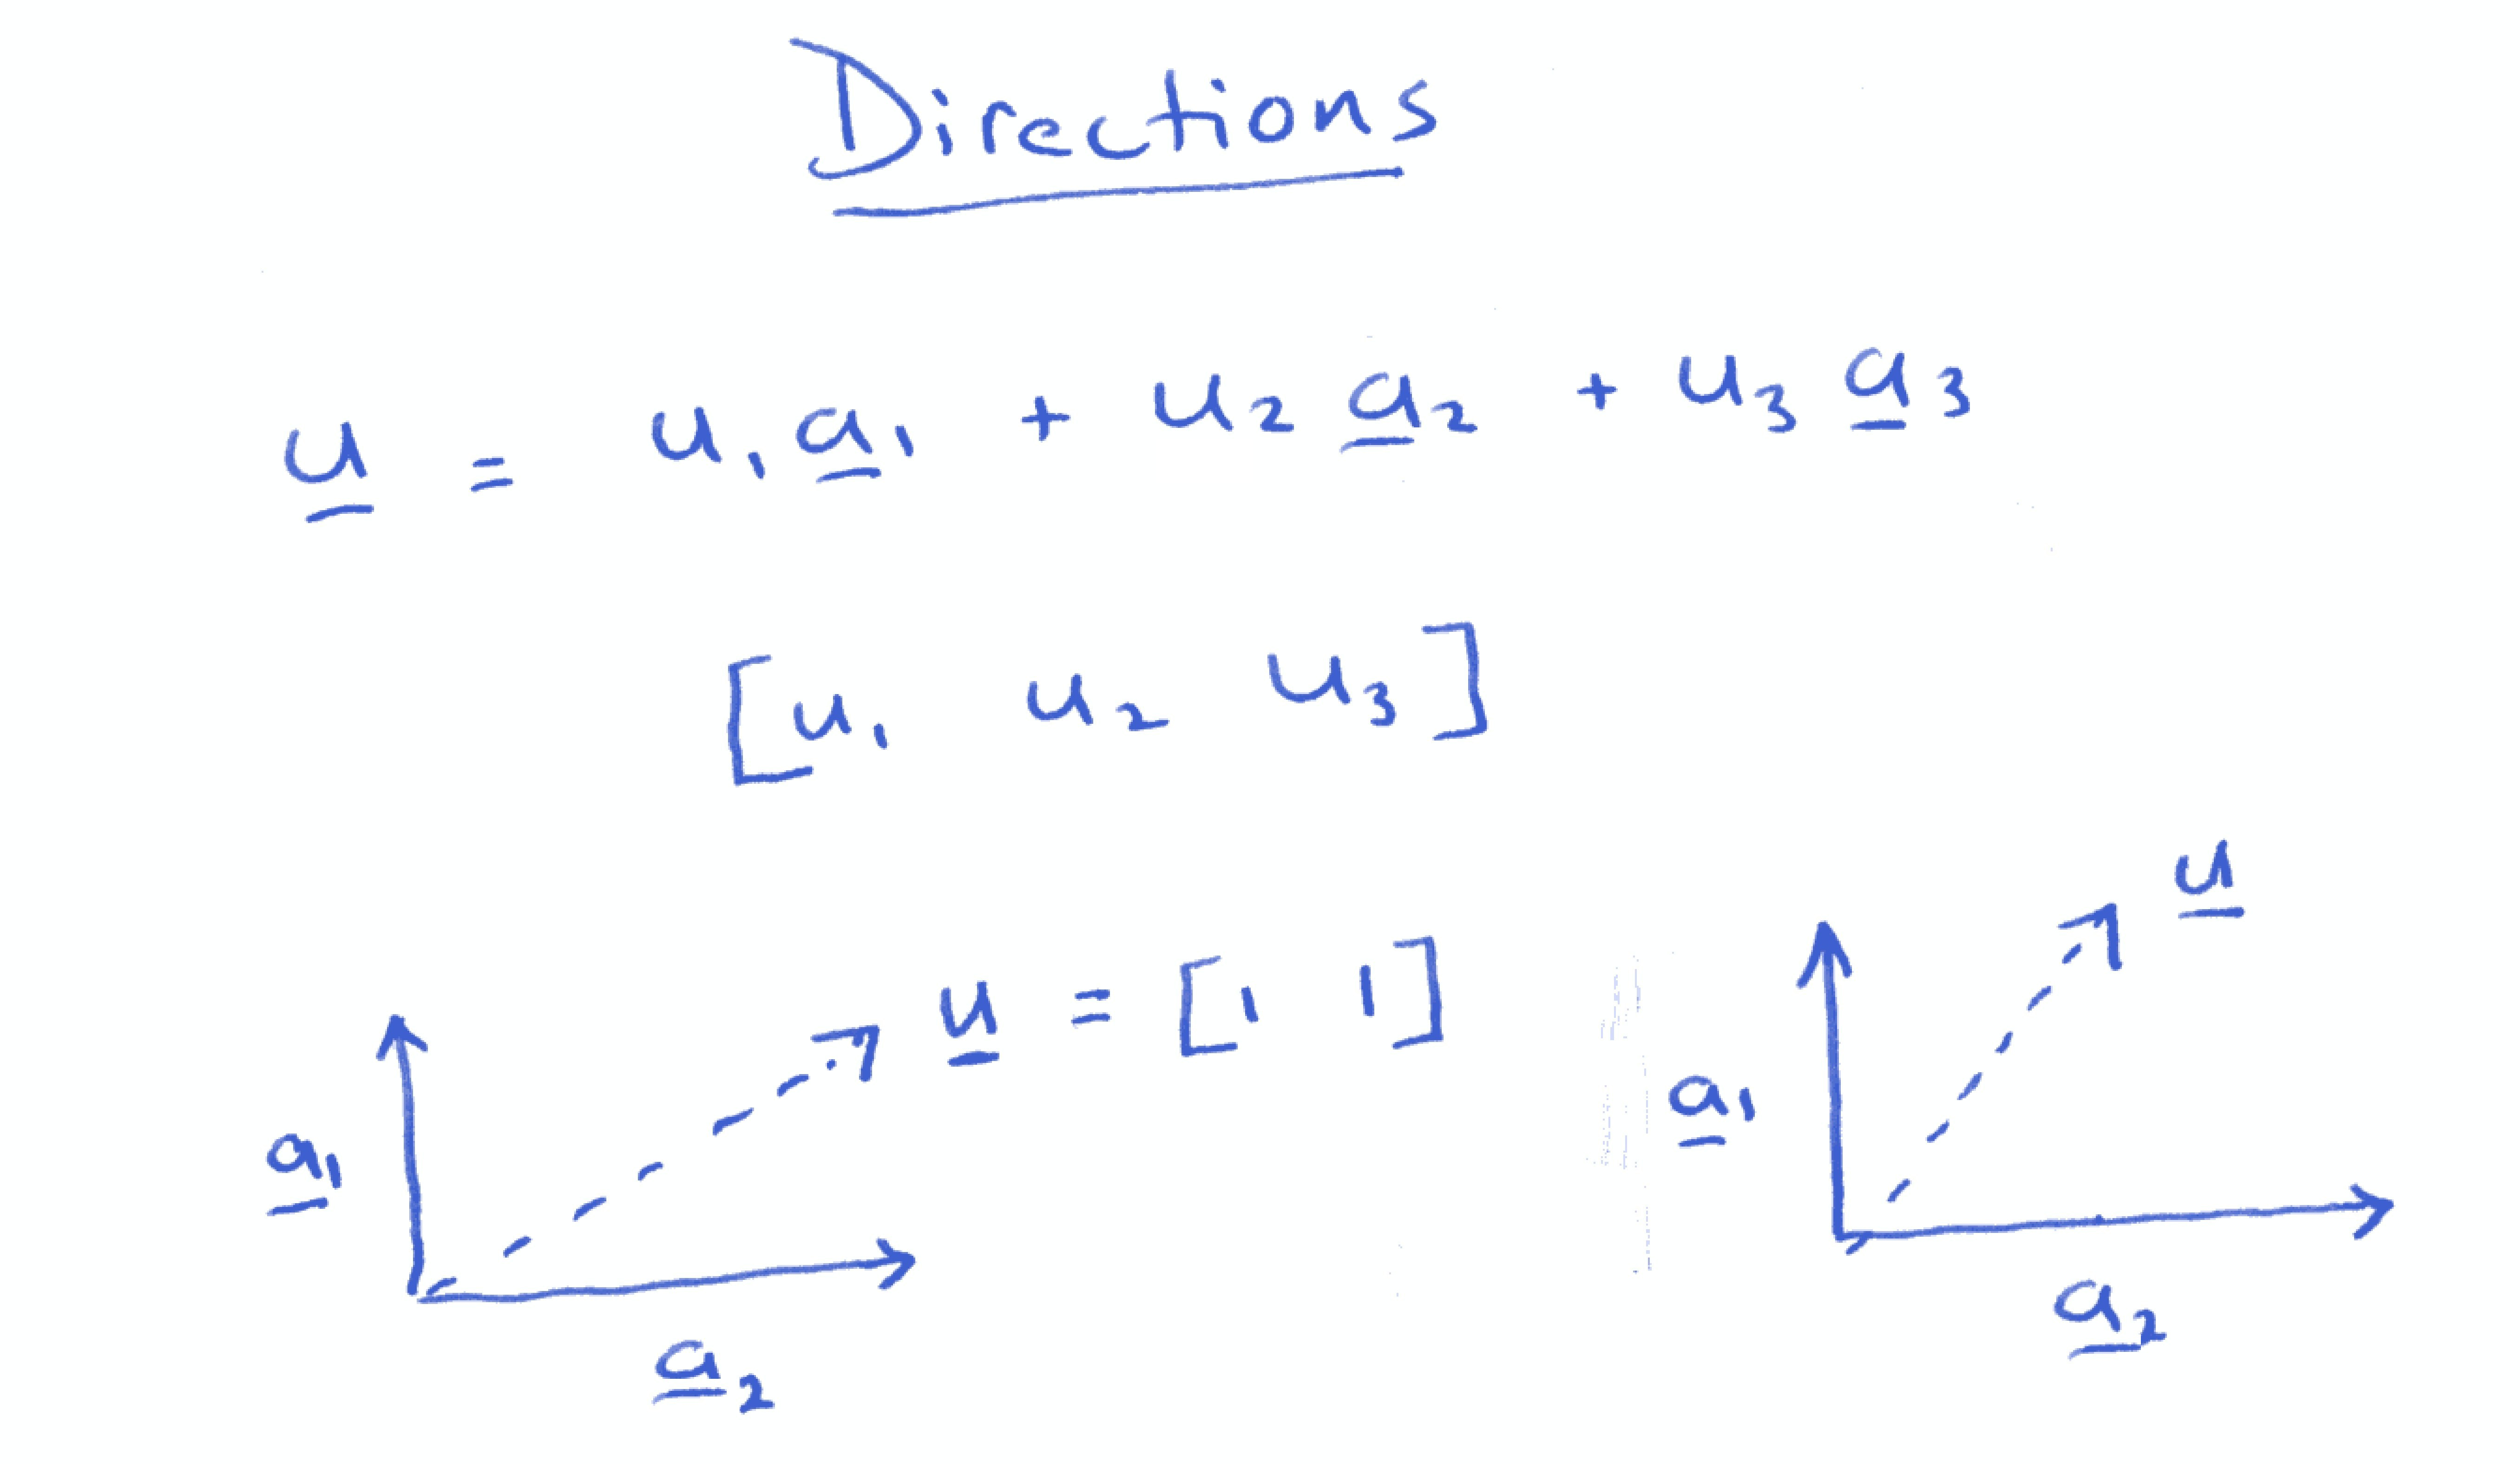 Directions
u = u₁ a₁ + u₂ a₂ + u₃ a₃
[u₁ u₂ u₃]
u = [1 1]
a₁
a₂
u
a₁
a₂